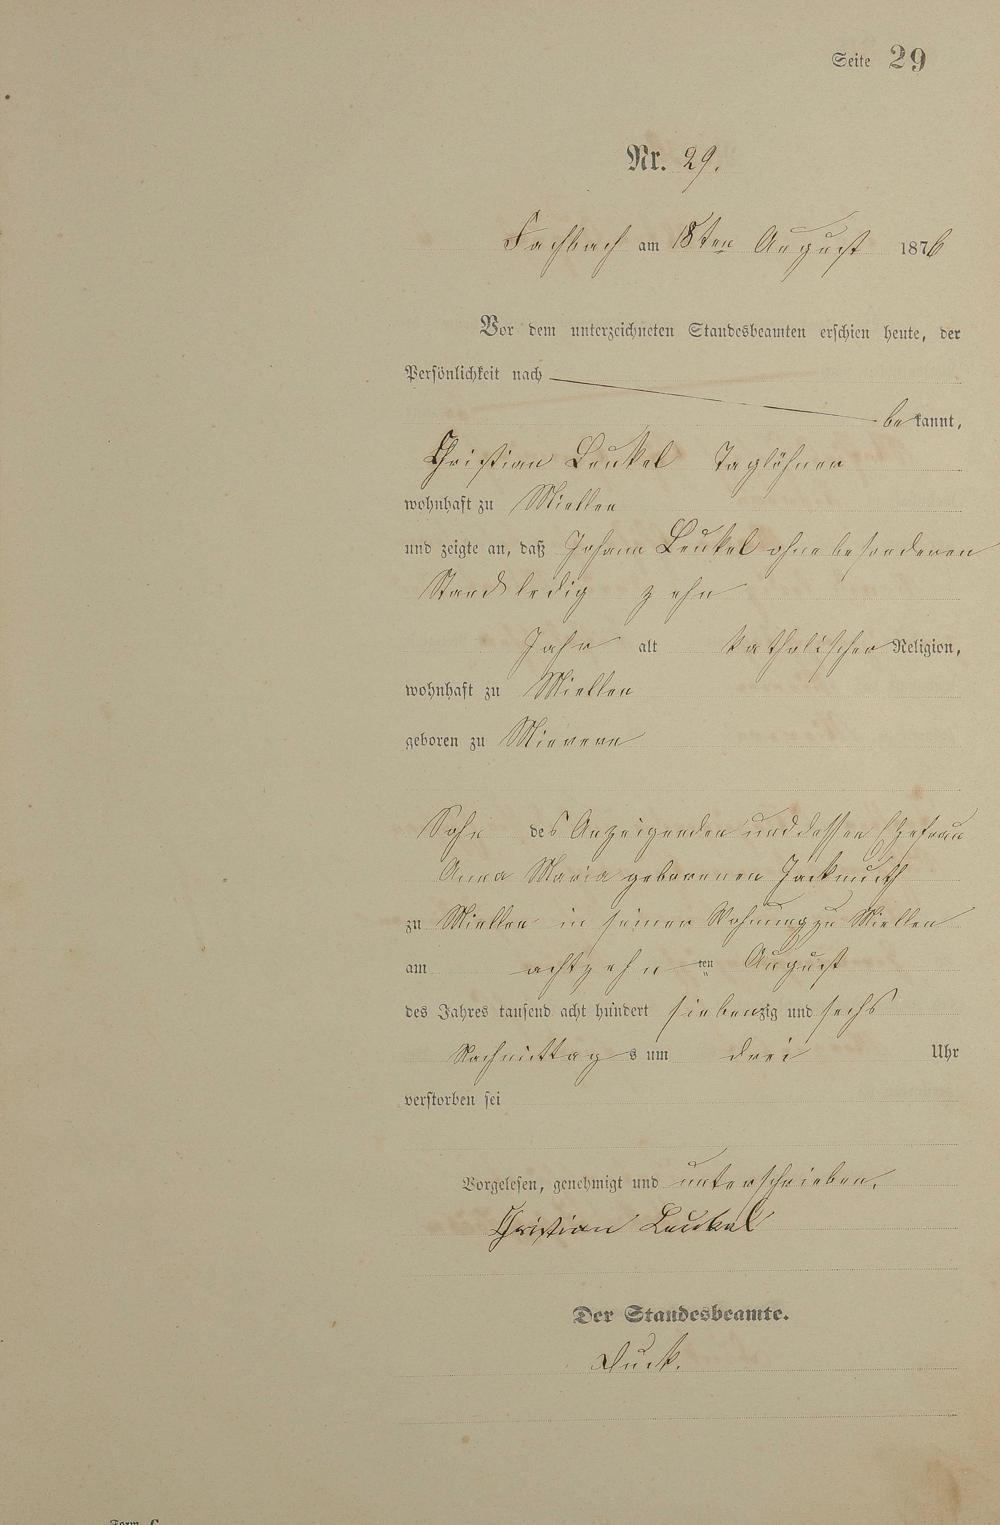 Seite 29
Nr. 29.
Fachbach am 18ten August 1876
Vor dem unterzeichneten Standesbeamten erschien heute, der
Persönlichkeit nach
bekannt,
Christian Leukel Taglöhner
wohnhaft zu Miellen
und zeigte an, daß Johann Leukel ohne besonderen
Stand ledig zehn
Jahr alt katholischer Religion,
wohnhaft zu Miellen
geboren zu Nievern
Sohn des Anzeigenden und dessen Ehefrau
Anna Maria geborenen Jackmuth
zu Miellen in seiner Wohnung zu Miellen
am achtzehn ten August
des Jahres tausend acht hundert siebenzig und sechs
Nachmittags um drei Uhr
verstorben sei
Vorgelesen, genehmigt und unterschrieben.
Christian Leukel
Der Standesbeamte.
Form. C